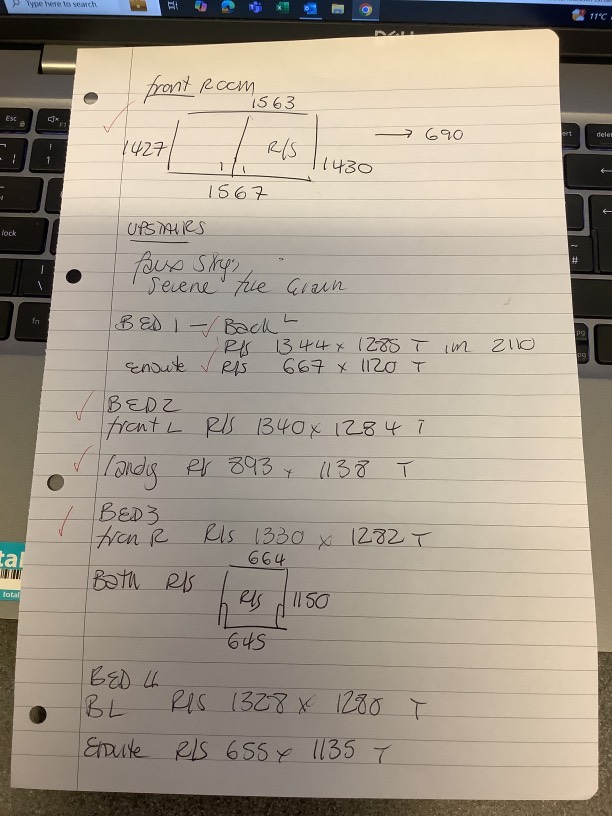 Type here to search
11°C
DELL
front Room
1563
1427
R/S
1430
→ 690
1567
UPSTAIRS
faux Sky,
Serene fire Grain
BED 1 – Back L
R/S 1344 x 1285 T im 2110
Ensuite R/S 667 x 1120 T
BED 2
front L R/S 1340 x 1284 T
landg R/S 893 x 1138 T
BED 3
fron R R/S 1330 x 1282 T
664
Bath R/S
R/S
1150
645
BED 4
BL R/S 1328 x 1280 T
Ensuite R/S 655 x 1135 T
Esc
lock
fn
delete
total